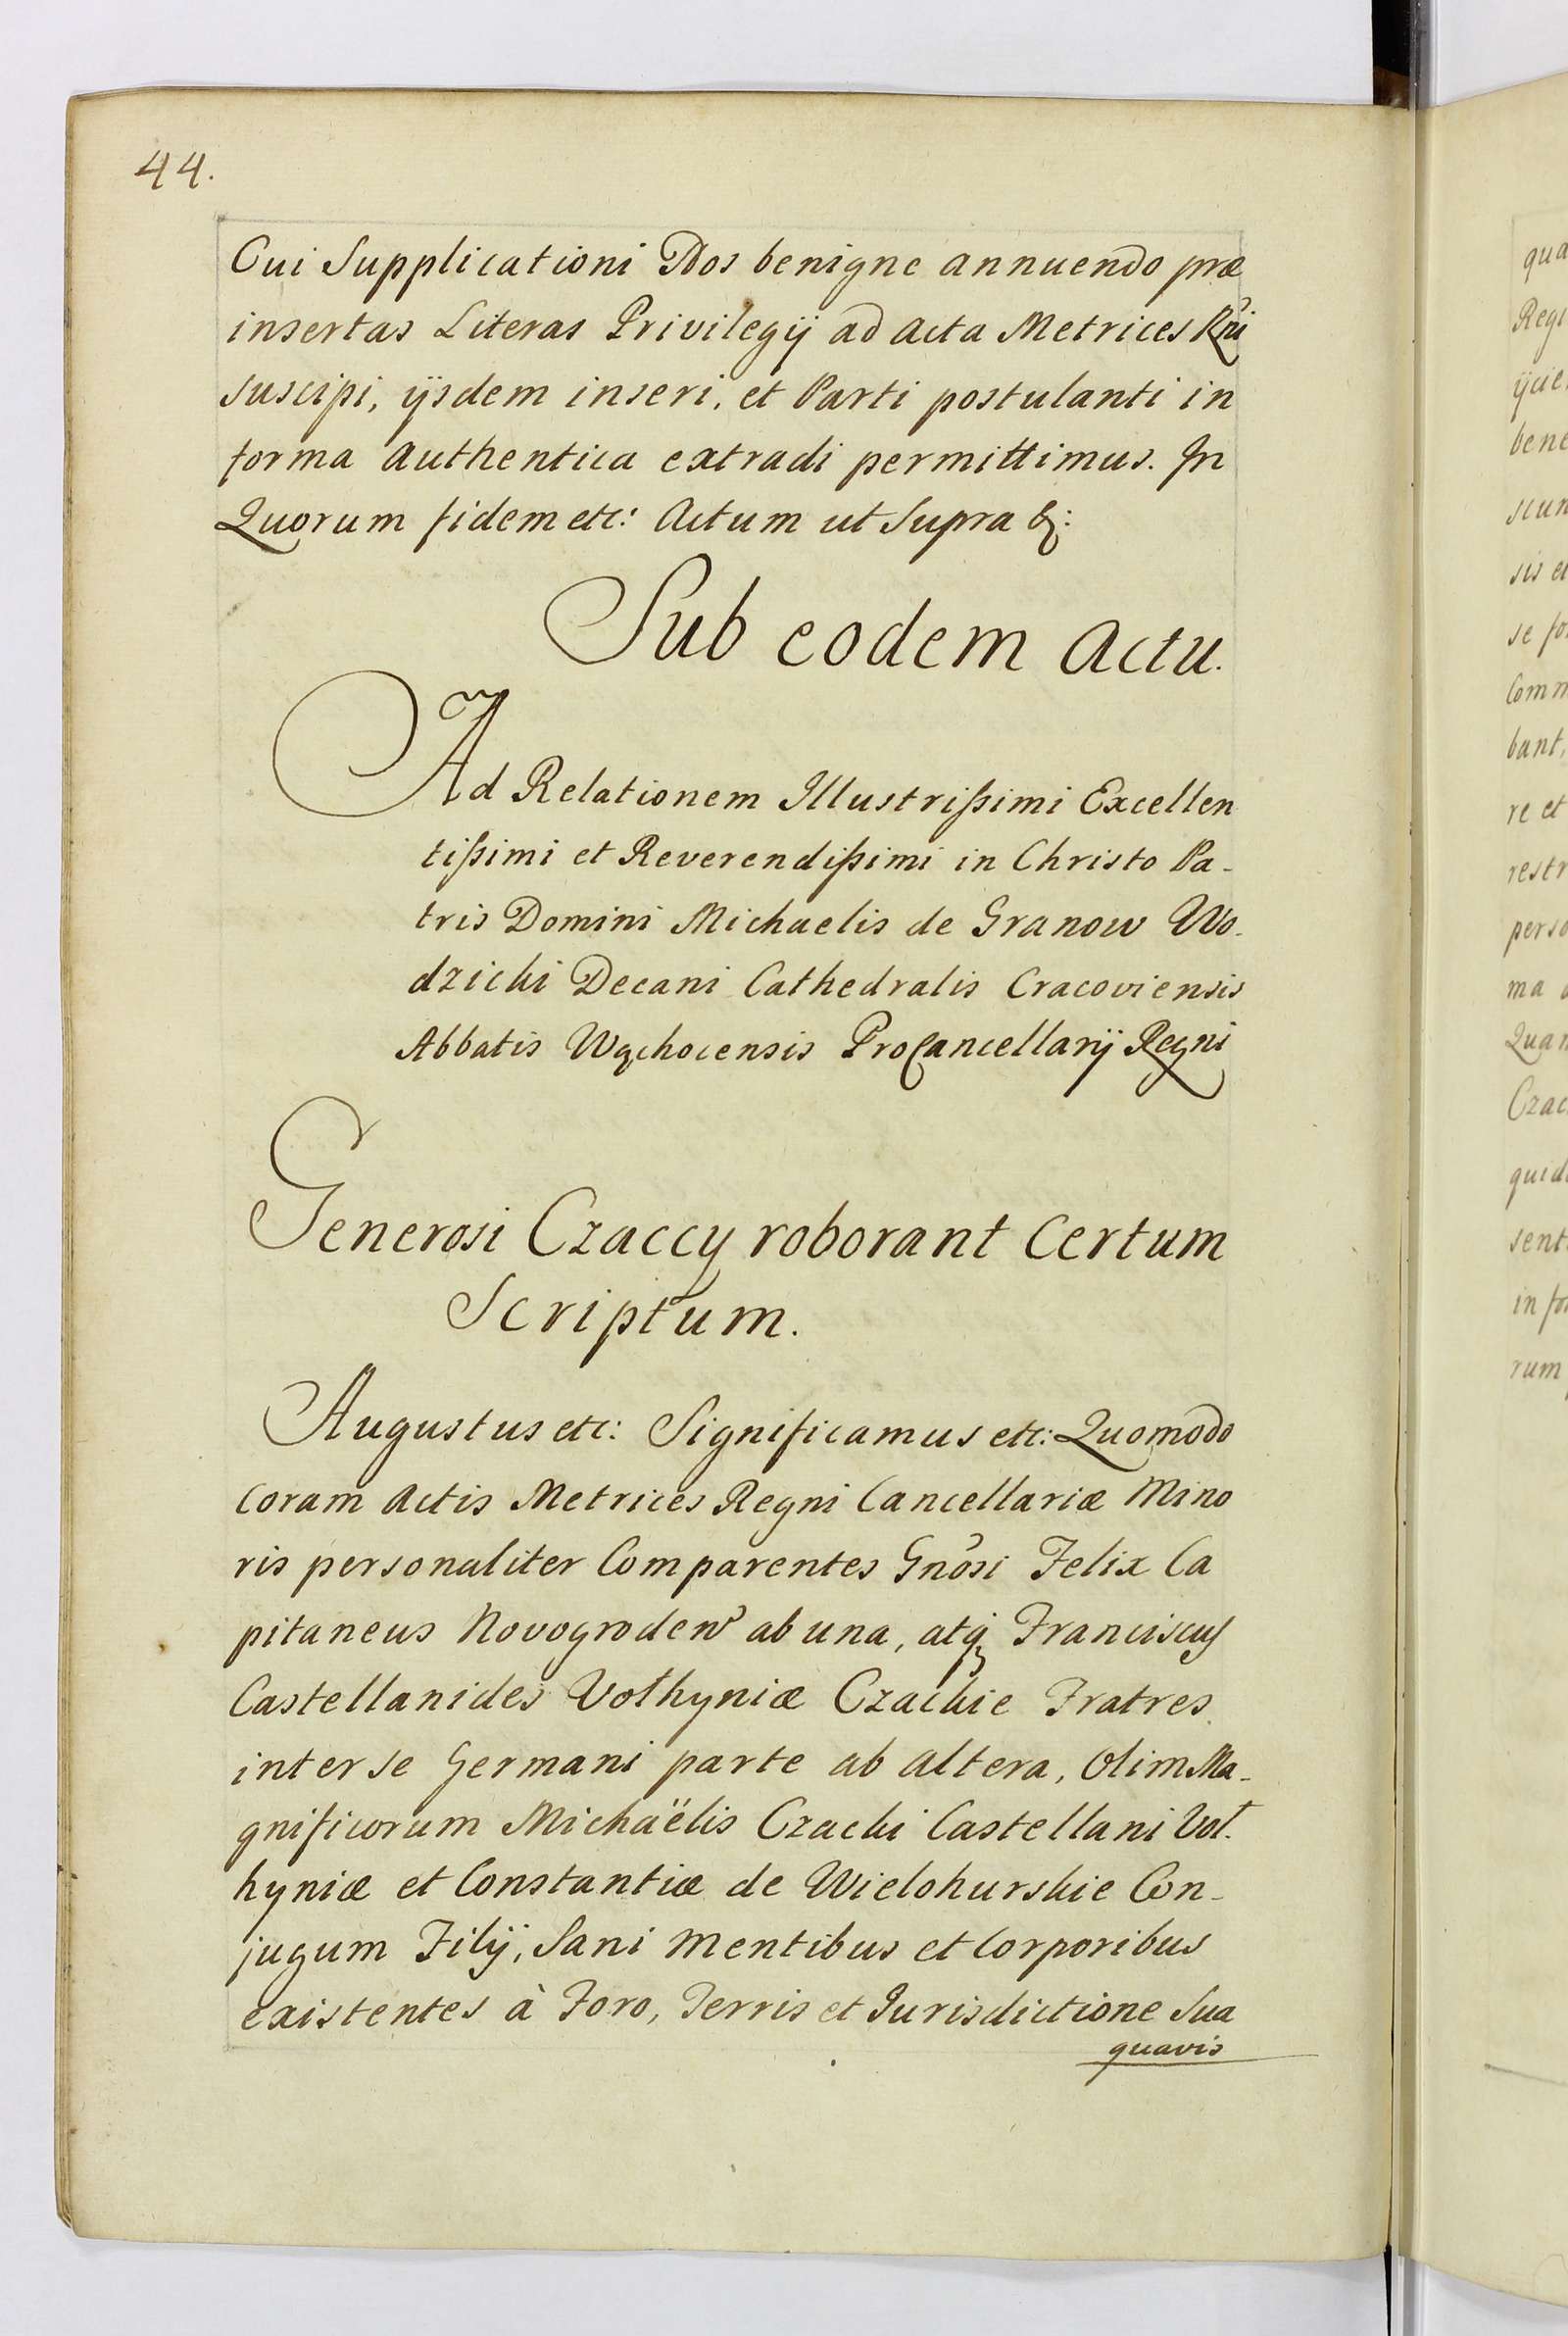 44.
Cui Supplicationi Nos benigne annuendo præ
insertas Literas Privilegij ad acta Metrices Rni
suscipi, ijsdem inseri, et Parti postulanti in
forma authentica extradi permittimus. In
Quorum fidem etc: Actum ut Supra &:
Sub eodem Actu.
Ad Relationem Illustrißimi Excellen
tißimi et Reverendißimi in Christo Pa-
tris Domini Michaelis de Granow Wo-
dzicki Decani Cathedralis Cracoviensis
Abbatis Wąchocensis ProCancellarij Regni
Generosi Czaccy roborant Certum
Scriptum.
Augustus etc: Significamus etc: Quomodo
Coram Actis Metrices Regni Cancellariæ Mino
ris personaliter Comparentes Gnosi Felix Ca
pitaneus Novogroden ab una, atq Franciscus
Castellanides Vołhyniæ Czackie Fratres
inter se Germani parte ab altera, Olim Ma-
gnificorum Michaëlis Czacki Castellani Voł-
hyniæ et Constantiæ de Wielohurskie Con-
jugum Filij, Sani Mentibus et Corporibus
existentes à Foro, Terris et Jurisdictione Sua
quavis
qua
Regi
ijcie
bene
scun
sis et
se fo
Comm
bant,
re et
restr
perso
ma a
Quan
Czac
quid
sent
in fo
rum